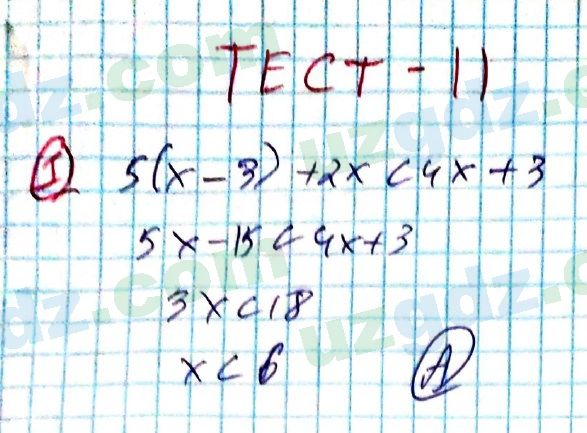 ТЕСТ - 11
1 5(x - 3) + 2x < 4x + 3
5x - 15 < 4x + 3
3x < 18
x < 6 A
uzgdz.com